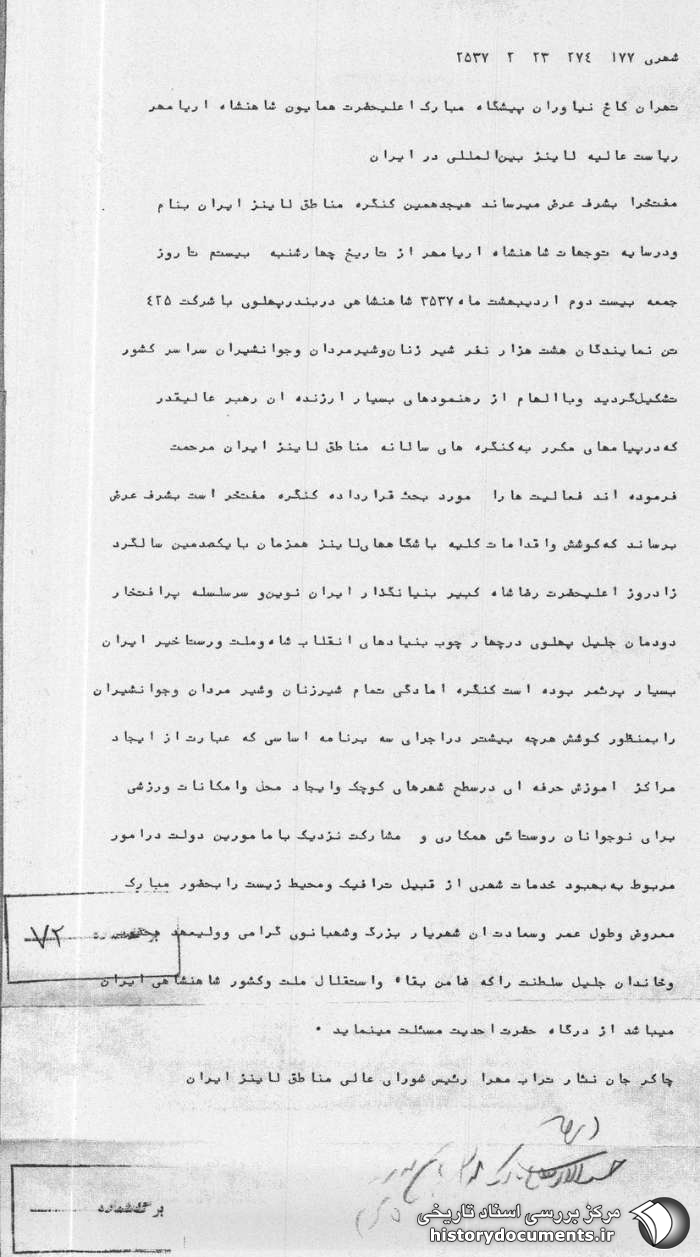 شهری ۱۷۷ ۲۷۴ ۲۳ ۲ ۲۵۳۷
تهران کاخ نیاوران پیشگاه مبارک اعلیحضرت همایون شاهنشاه اریامهر
ریاست عالیه لاینز بین‌المللی در ایران
مفتخرا بشرف عرض میرساند هیجدهمین کنگره مناطق لاینز ایران بنام
ودرسایه توجهات شاهنشاه اریامهر از تاریخ چهارشنبه بیستم تا روز
جمعه بیست دوم اردیبهشت ماه ۳۵۳۷ شاهنشاهی دربندرپهلوی با شرکت ۴۲۵
تن نمایندگان هشت هزار نفر شیر زنان‌وشیرمردان وجوانشیران سراسر کشور
تشکیل‌گردید وباالهام از رهنمودهای بسیار ارزنده ان رهبر عالیقدر
که‌درپیامهای مکرر به‌کنگره های سالانه مناطق لاینز ایران مرحمت
فرموده اند فعالیت هارا مورد بحث قرارداده کنگره مفتخر است بشرف عرض
برساند که‌کوشش واقدامات کلیه باشگاههای‌لاینز همزمان بایکصدمین سالگرد
زادروز اعلیحضرت رضاشاه کبیر بنیانگذار ایران نوین‌و سرسلسله پرافتخار
دودمان جلیل پهلوی درچهار چوب بنیادهای انقلاب شاه‌وملت ورستاخیر ایران
بسیار پرثمر بوده است کنگره امادگی تمام شیرزنان وشیر مردان وجوانشیران
رابمنظور کوشش هرچه بیشتر دراجرای سه برنامه اساسی که عبارت‌از ایجاد
مراکز اموزش حرفه ای درسطح شهرهای کوچک وایجاد محل وامکانات ورزشی
برای نوجوانان روستائی همکاری و مشارکت نزدیک بامامورین دولت درامور
مربوط به‌بهبود خدمات شهری از قبیل ترافیک ومحیط زیست رابحضور مبارک
معروض وطول عمر وسعادت‌ان شهریار بزرگ وشهبانوی گرامی وولیعهد
وخاندان جلیل سلطنت راکه ضامن بقاء واستقلال ملت وکشور شاهنشاهی ایران
میباشد از درگاه حضرت‌احدیت مسئلت مینماید .
چاکر جان نثار تراب مهرا رئیس شورای عالی مناطق لاینز ایران
۷۲
برگ‌شماره
مرکز بررسی اسناد تاریخی
historydocuments.ir